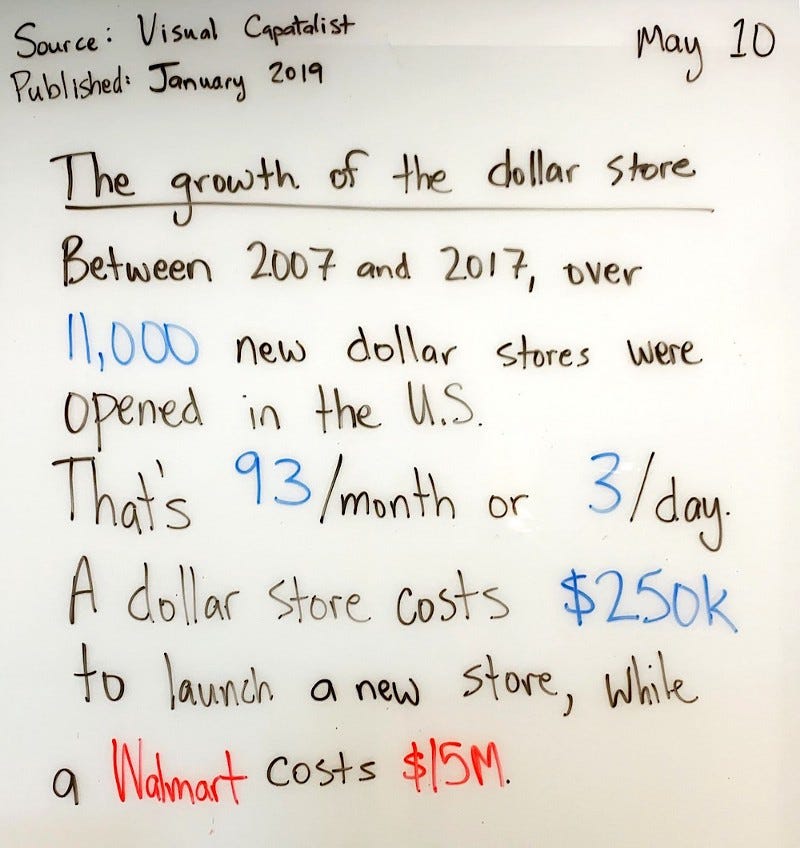 Source: Visual Capatalist
Published: January 2019
May 10
The growth of the dollar store
Between 2007 and 2017, over
11,000 new dollar stores were
opened in the U.S.
That's 93/month or 3/day.
A dollar store costs $250k
to launch a new store, while
a Walmart costs $15M.